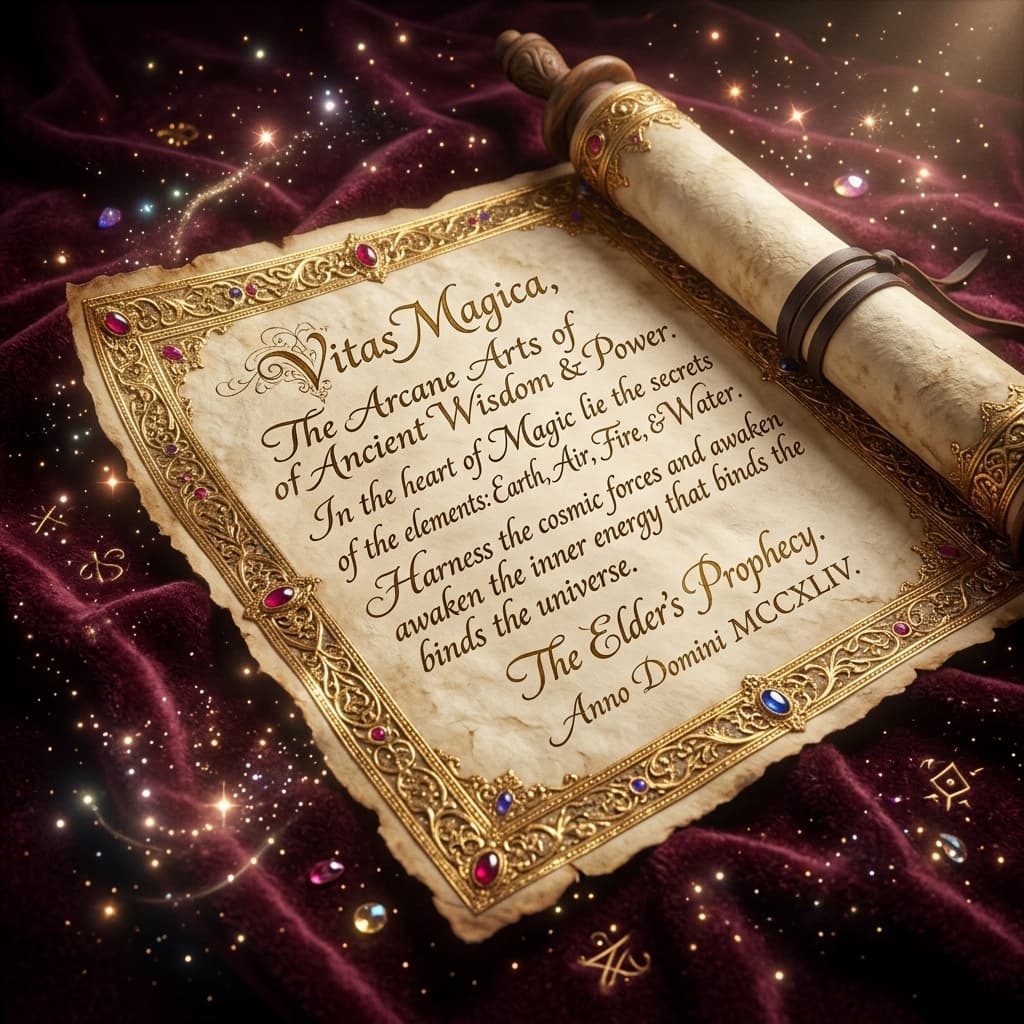 Vitas Magica,
The Arcane Arts of
of Ancient Wisdom & Power.
In the heart of Magic lie the secrets
of the elements: Earth, Air, Fire, & Water.
Harness the cosmic forces and awaken
awaken the inner energy that binds the
binds the universe.
The Elder's Prophecy.
Anno Domini MCCXLIV.